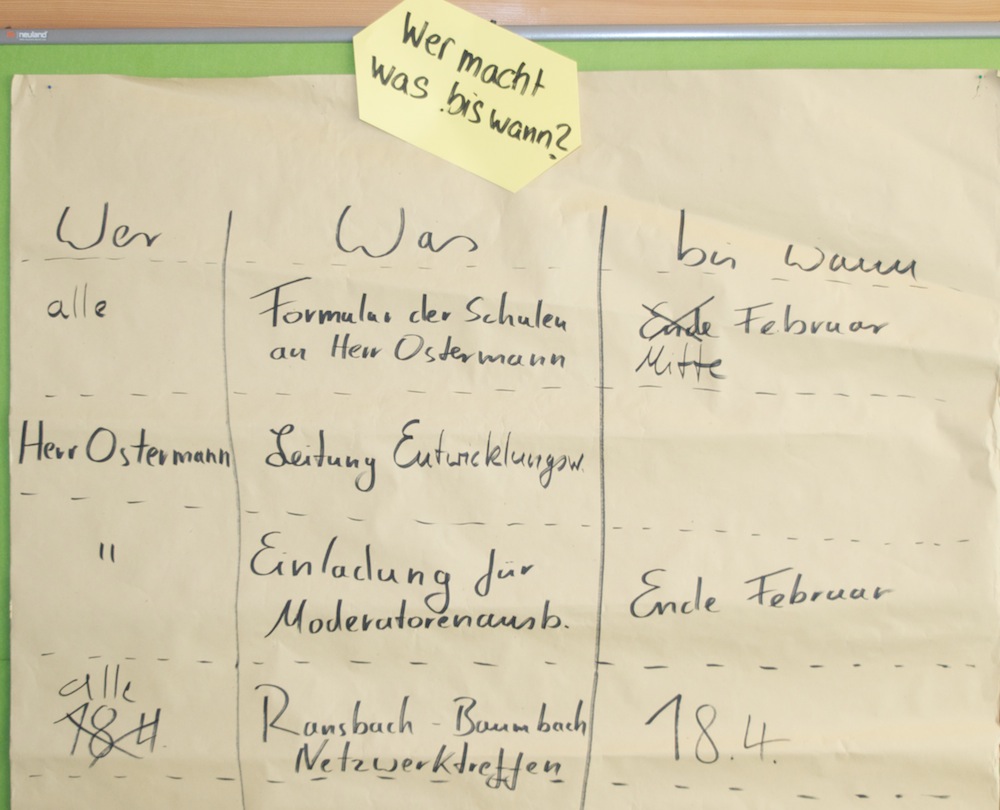 neuland
Wer macht
was bis wann?
Wer Was bis wann
alle Formular der Schulen Ende Februar
an Herr Ostermann Mitte
Herr Ostermann Leitung Entwicklungsw.
" Einladung für
Moderatorenausb. Ende Februar
alle
18.4. Ransbach - Baumbach 18.4.
Netzwerktreffen